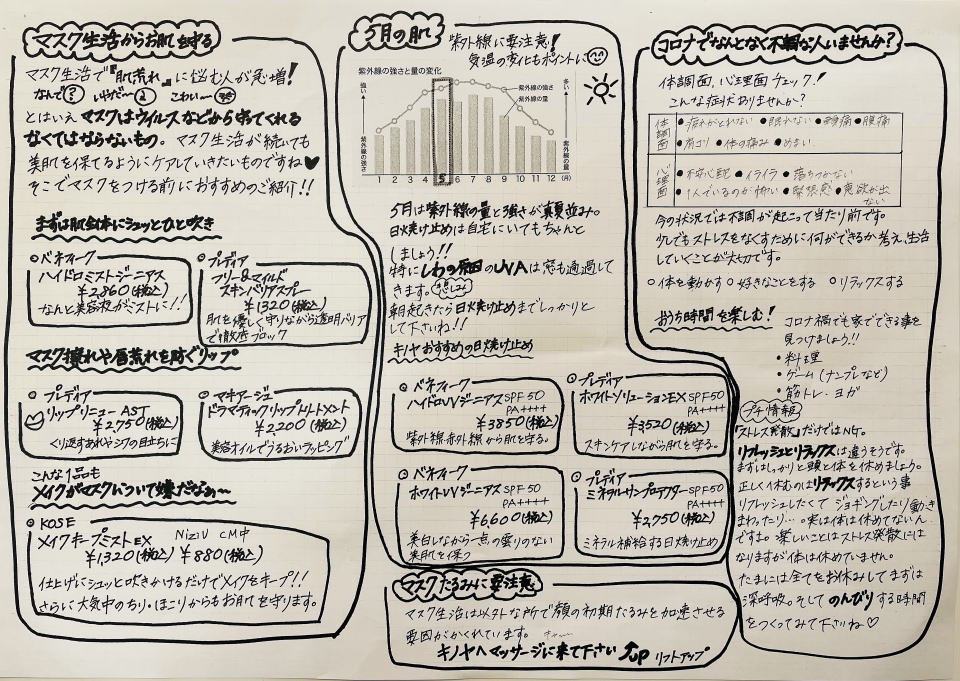 マスク生活からお肌を守る
マスク生活で『肌荒れ』に悩む人が急増!
なんで? いやだ〜 こわい〜
とはいえマスクはウイルスなどから守ってくれる
なくてはならないもの。マスク生活が続いても
美肌を保てるようにケアしていきたいものですね♥
そこでマスクをつける前におすすめのご紹介!!
まずは肌全体にシュッとひと吹き
◎ベネフィーク
ハイドロミストジーニアス
¥2,860(税込)
なんと美容液がミストに!!
◎プレディア
フリー&マイルド
スキンバリアスプレー
¥1320(税込)
肌を優しく守りながら透明バリア
で徹底ブロック
マスク擦れや唇荒れを防ぐリップ
◎プレディア
リップリニュー AST
¥2,750(税込)
くり返すあれやシワの目立ちに
◎マキアージュ
ドラマティックリップトリートメント
¥2,200(税込)
美容オイルでうるおいラッピング
こんな1品も
メイクがマスクについて嫌だなぁ〜
◎KOSE
メイクキープミストEX NiziU CM中
¥1,320(税込) ¥880(税込)
仕上げにシュッと吹きかけるだけでメイクをキープ!!
さらに大気中のちり・ほこりからもお肌を守ります。
5月の肌
紫外線に要注意!
気温の変化もポイントに
紫外線の強さと量の変化
強い
紫外線の強さ
弱い
多い
紫外線の量
少ない
紫外線の強さ
紫外線の量
1 2 3 4 5 6 7 8 9 10 11 12 (月)
5月は紫外線の量と強さが真夏並み。
日焼け止めは自宅にいてもちゃんと
しましょう!!
特にしわの原因のUVAは窓も通過して
きます。
朝起きたら日焼け止めまでしっかりと
して下さいね!!
キノヤおすすめの日焼け止め
◎ベネフィーク
ハイドロUVジーニアス SPF50
PA++++
¥3850(税込)
紫外線赤外線から肌を守る。
◎プレディア
ホワイトソリューションEX SPF50
PA++++
¥3520(税込)
スキンケアしながら肌を守る。
◎ベネフィーク
ホワイトUVジーニアス SPF50
PA++++
¥6,600(税込)
美白しながら一点の曇りのない
美肌を保つ
◎プレディア
ミネラルサンプロテクター SPF50
PA++++
¥2,750(税込)
ミネラル補給する日焼け止め
マスクたるみに要注意
マスク生活は以外な所で顔の初期たるみを加速させる
要因がかくれています。 キャ〜
キノヤへマッサージに来て下さい ↑up リフトアップ
コロナでなんとなく不調な人いませんか?
体調面、心理面チェック!
こんな症状ありませんか?
体調面
●疲れがとれない ●眠れない ●頭痛 ●腹痛
●肩コリ ●体の痛み ●めまい
心理面
●不安心配 ●イライラ ●落ちつかない
●1人でいるのが怖い ●緊張感 ●意欲が出ない
今の状況では不調が起こって当たり前です。
少しでもストレスをなくすために何ができるか考え、生活
していくことが大切です。
○体を動かす ○好きなことをする ○リラックスする
おうち時間を楽しむ!
コロナ禍でも家でできる事を
見つけましょう!!
・料理
・ゲーム(ナンプレなど)
・筋トレ・ヨガ
プチ情報
「ストレス発散」だけではNG。
リフレッシュとリラックスは違うそうです。
まずはしっかりと頭と体を休めましょう。
正しく休むのはリラックスするという事
リフレッシュしたくてジョギングしたり動き
まわったり…。実は体は休めてないん
ですよ。楽しいことはストレス発散には
なりますが体は休めていません。
たまには全てをお休みしてまずは
深呼吸。そしてのんびりする時間
をつくってみて下さいね♡